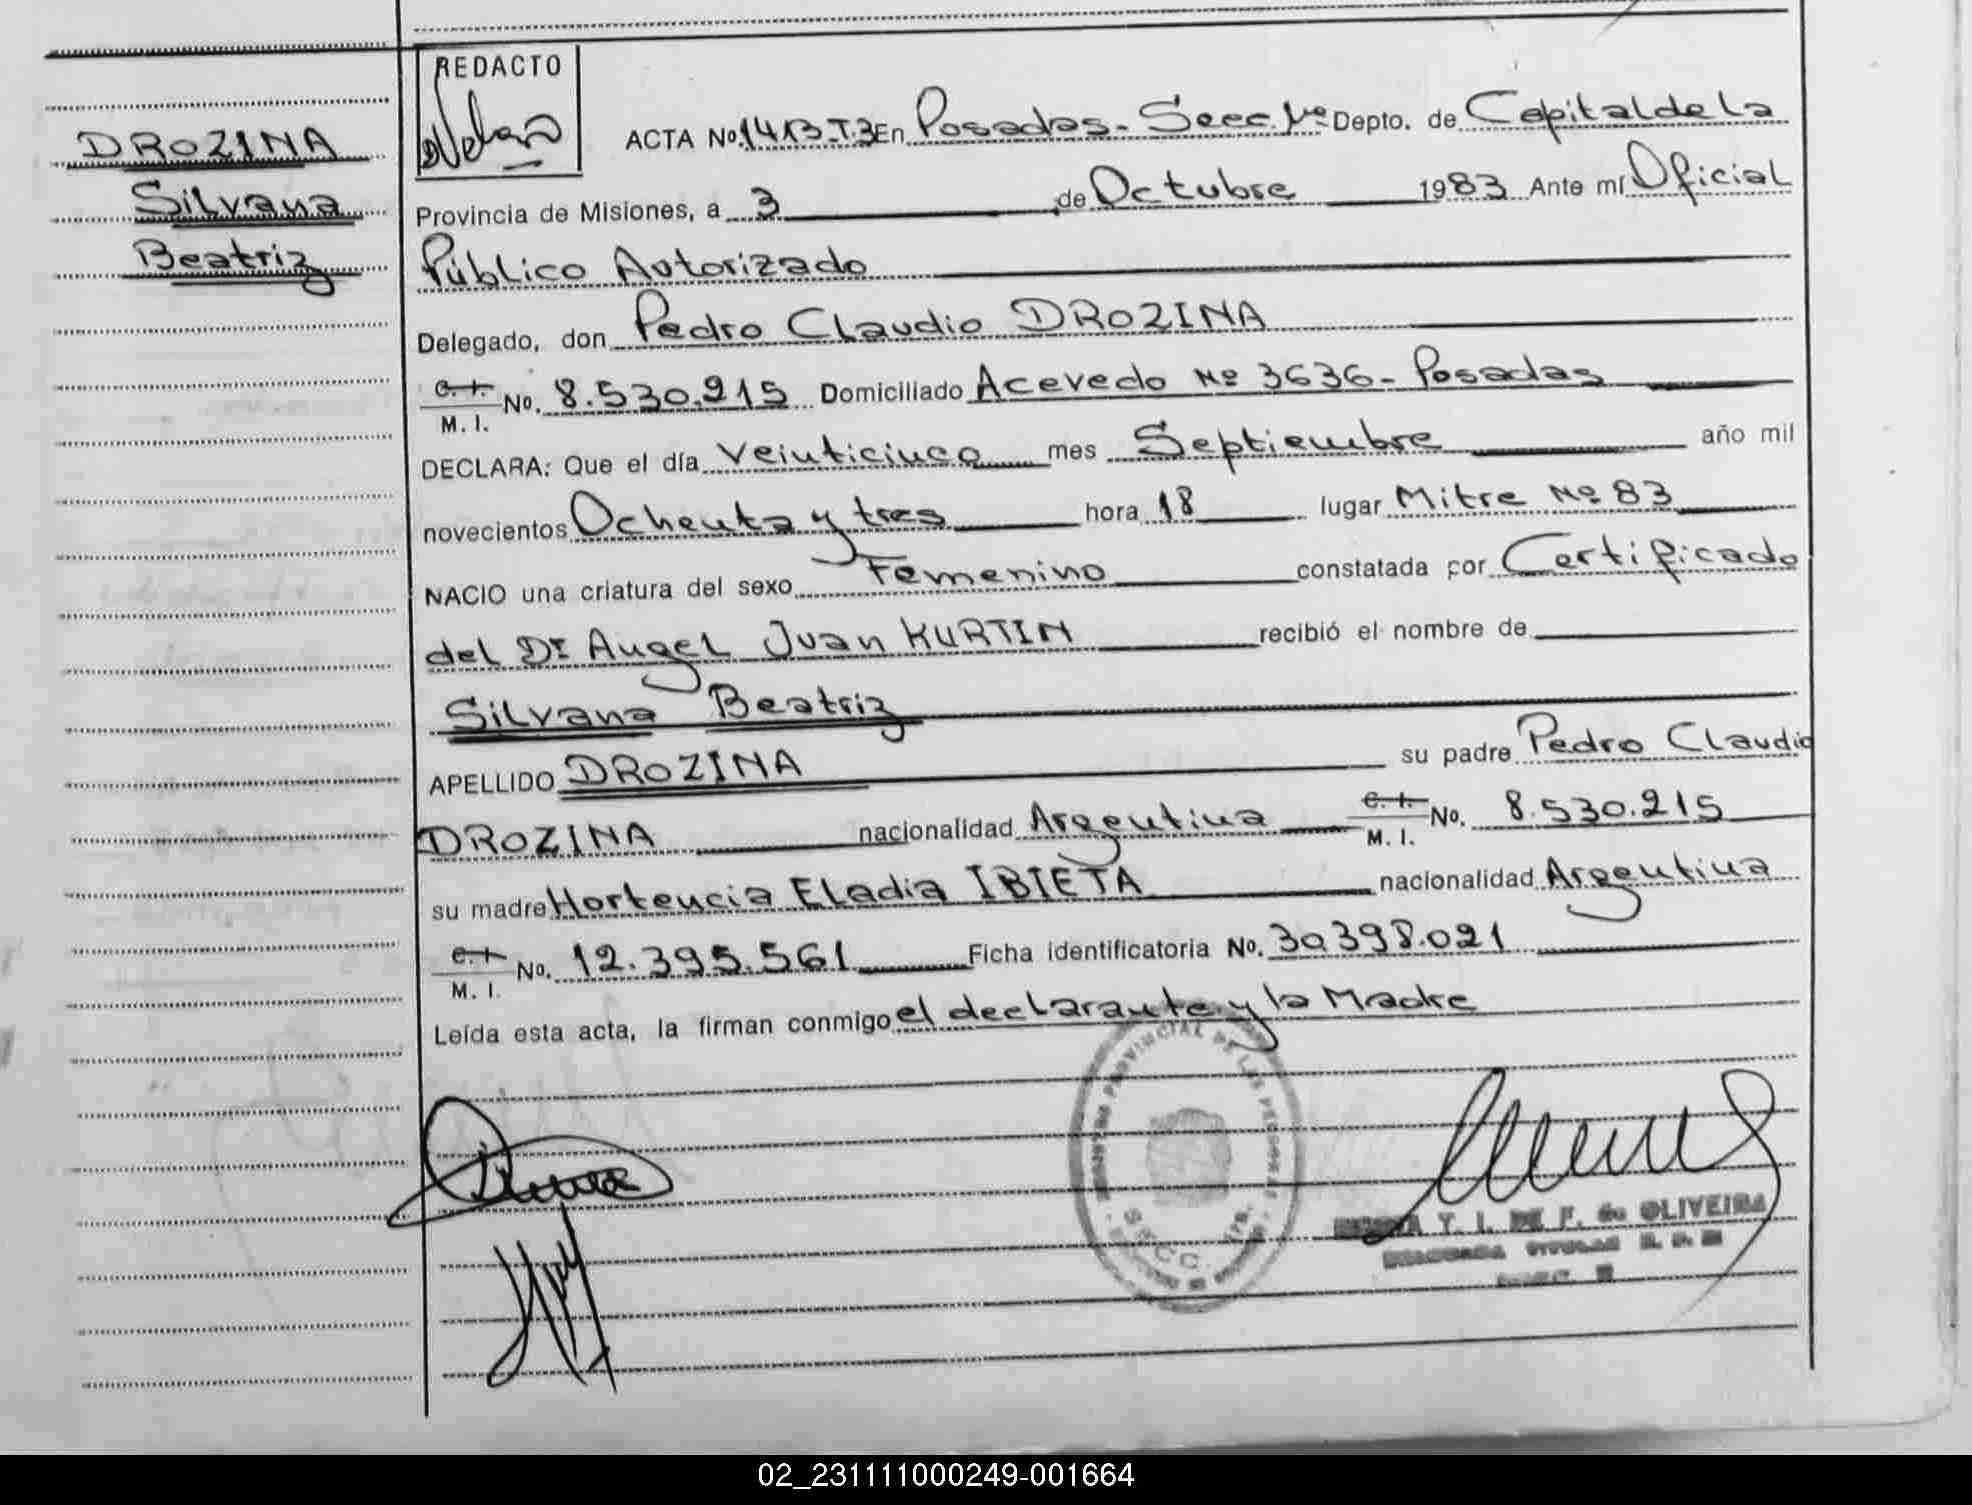 REDACTO
DROZINA
Silvana
Beatriz
ACTA No. 1413-T.3 En Posadas - Secc. 1ra Depto. de Capital de la
Provincia de Misiones, a 3 de Octubre 1983 Ante mí Oficial
Público Autorizado
Delegado, don Pedro Claudio DROZINA
C. I. M. I. No. 8.530.215 Domiciliado Acevedo Nº 3636 - Posadas
DECLARA: Que el día veinticinco mes Septiembre año mil
novecientos Ochenta y tres hora 18 lugar Mitre Nº 83
NACIO una criatura del sexo Femenino constatada por Certificado
del Dr Angel Juan KURTIN recibió el nombre de
Silvana Beatriz
APELLIDO DROZINA su padre Pedro Claudio
DROZINA nacionalidad Argentina C. I. M. I. No. 8.530.215
su madre Hortencia Eladia IBIETA nacionalidad Argentina
C. I. M. I. No. 12.395.561 Ficha identificatoria No. 30.398.021
Leída esta acta, la firman conmigo el declarante y la Madre
PROVINCIAL DE LAS PERSONAS
SECC. 1ra.
T. I. DE F. de OLIVEIRA
02_231111000249-001664